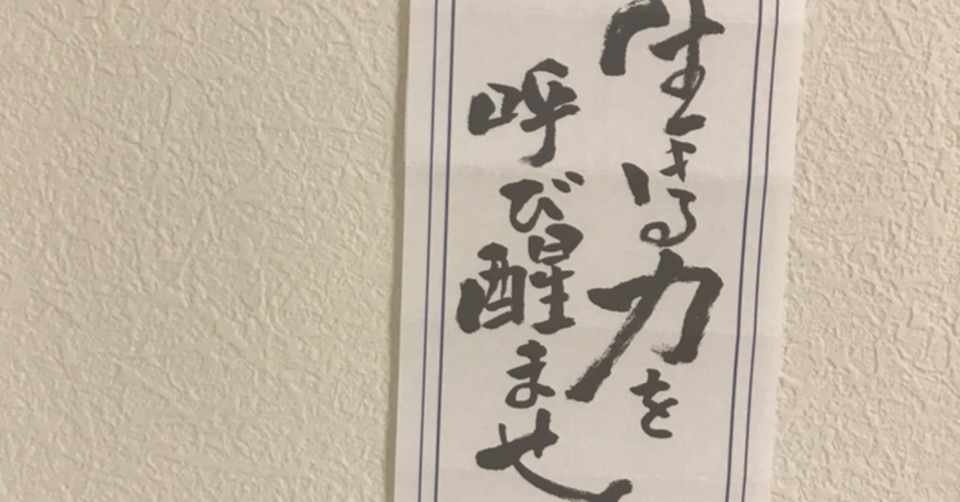 生きる力を
呼び醒ませ